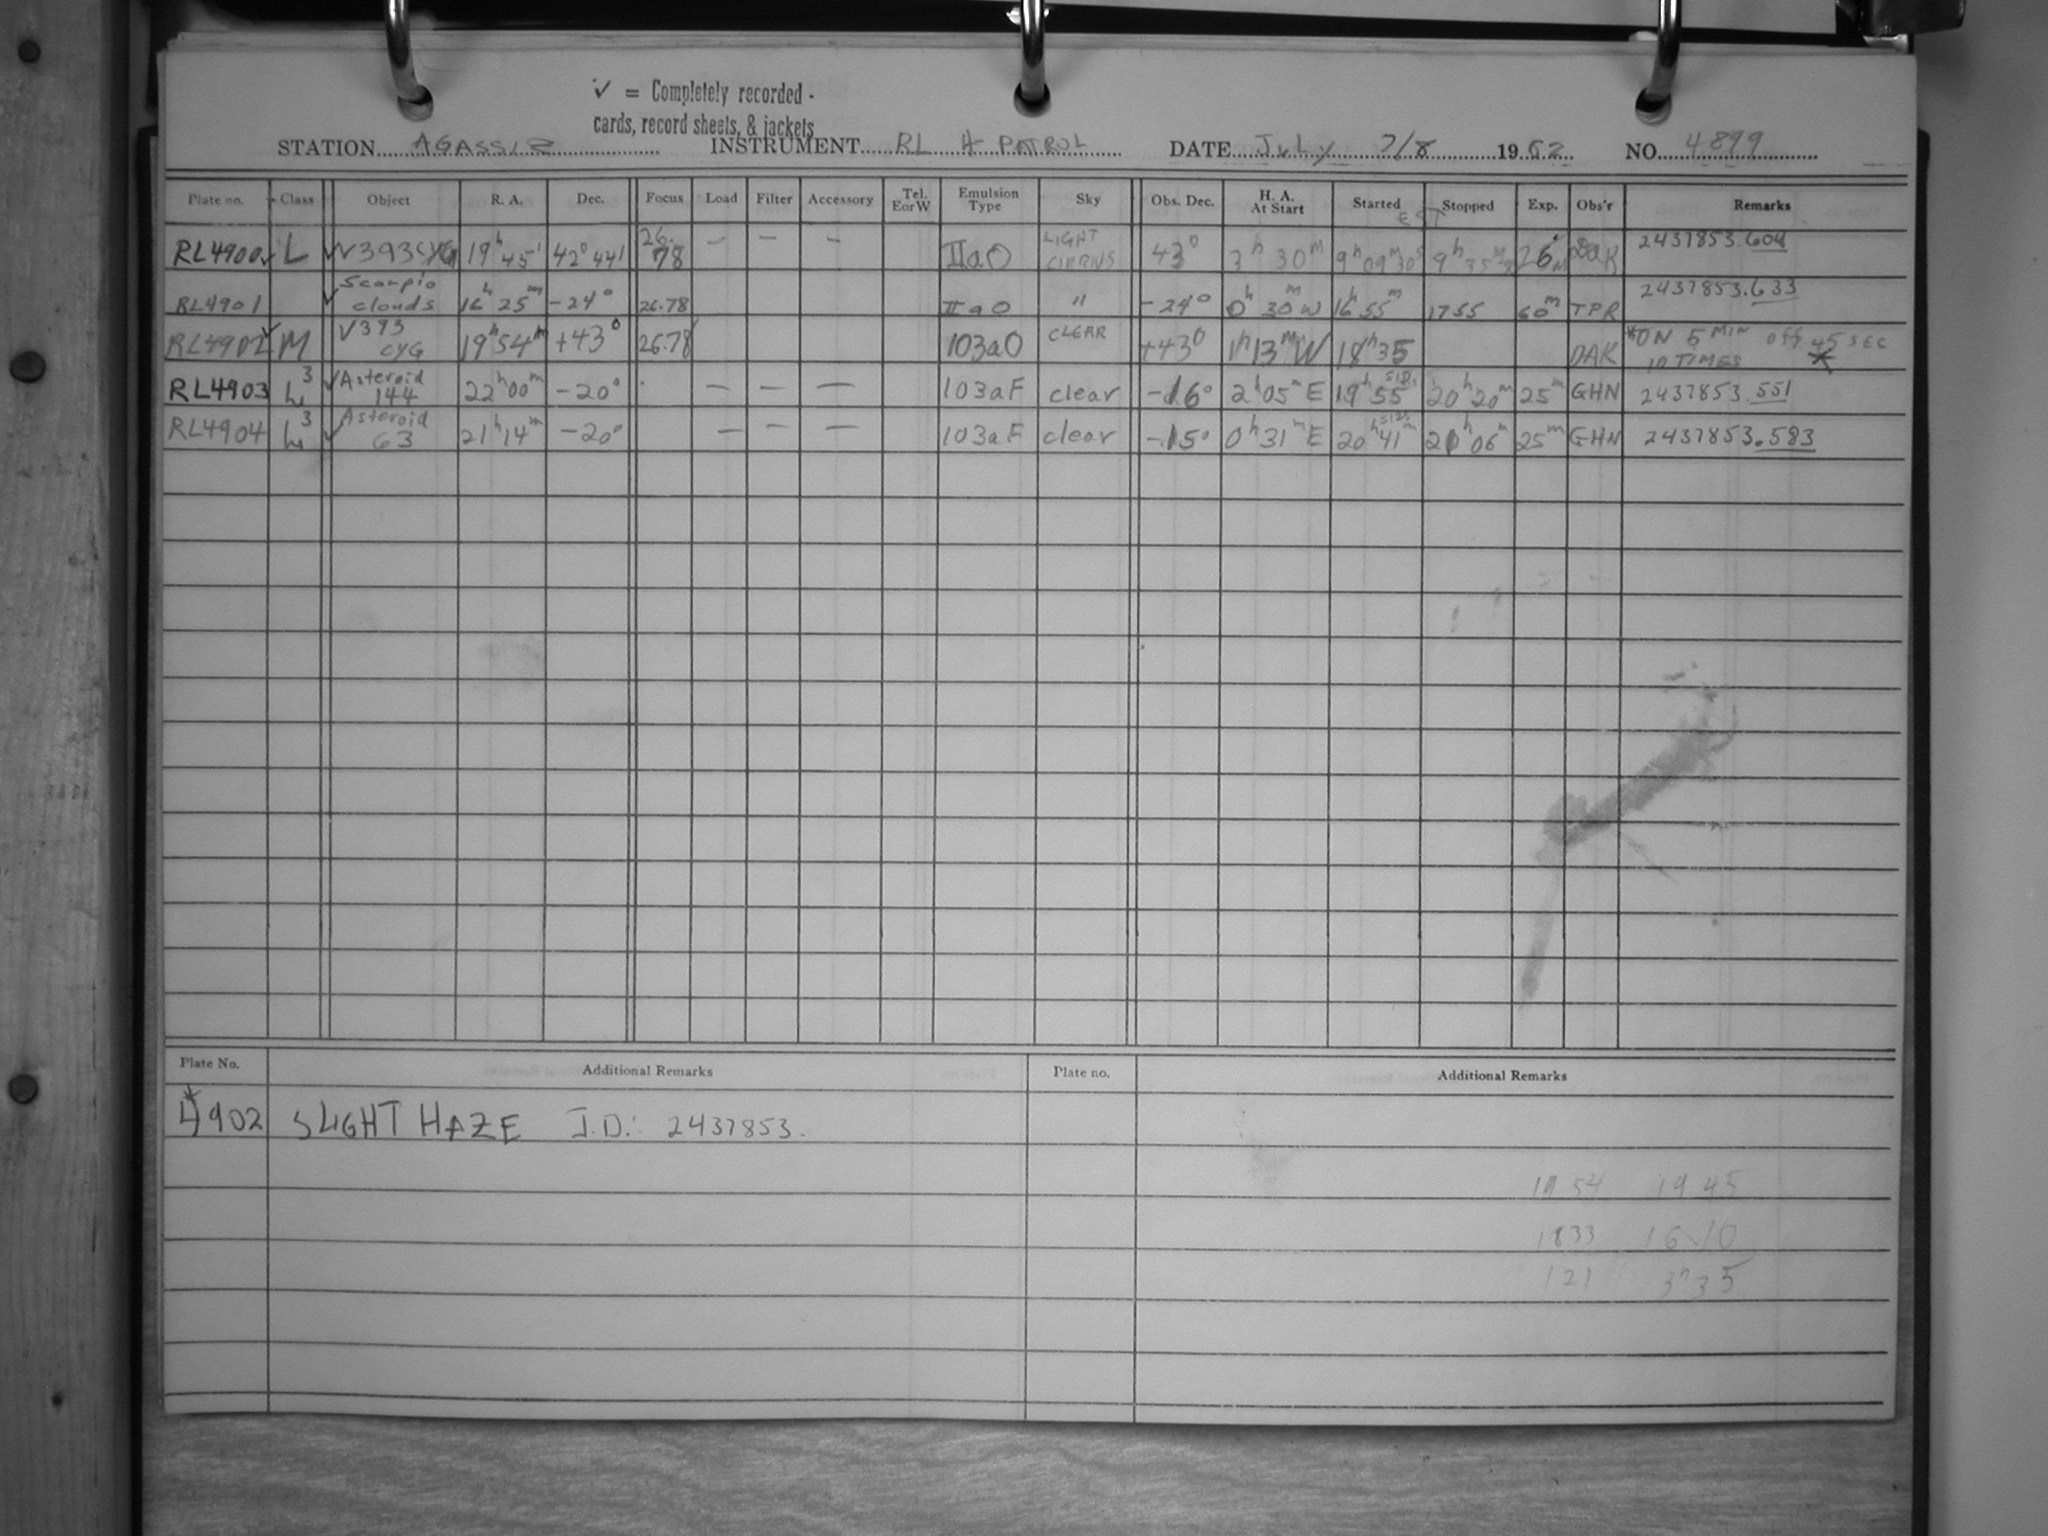 ✓ = Completely recorded -
cards, record sheets, & jackets
STATION AGASSIZ INSTRUMENT RL 4 PATROL DATE July 7/8 1962 NO. 4899
Plate no. Class Object R. A. Dec. Focus Load Filter Accessory Tel. E or W Emulsion Type Sky Obs. Dec. H. A. At Start Started Stopped Exp. Obs'r Remarks
EST
RL4900 ✓ L ✓ V393CYG 19h 45' 42° 44' 26.78 — — — IIaO LIGHT CIRRUS 43° 3h 30m 9h 09m 30s 9h 35m 26m DAK 2437853.604
RL4901 ✓ Scorpio clouds 16h 25m -24° 26.78 IIaO " -24° 0h 30m W 16h 55m 1755 60m TPR 2437853.633
RL4902 ✓ M V393 CYG 19h 54m +43° 26.78 103aO CLEAR +43° 1h 13m W 18h 35 DAK *ON 5 MIN OFF 45 SEC 10 TIMES *
RL4903 L3 ✓ Asteroid 144 22h 00m -20° — — — 103aF clear -16° 2h 05m E 19h 55 SID. 20h 20m 25m GHN 2437853.551
RL4904 L3 ✓ Asteroid 63 21h 14m -20° — — — 103aF clear -15° 0h 31m E 20h 41m SID. 21h 06m 25m GHN 2437853.583
Plate No. Additional Remarks Plate no. Additional Remarks
*4902 SLIGHT HAZE J.D.: 2437853.
1954 1945
1833 1610
121 3h35